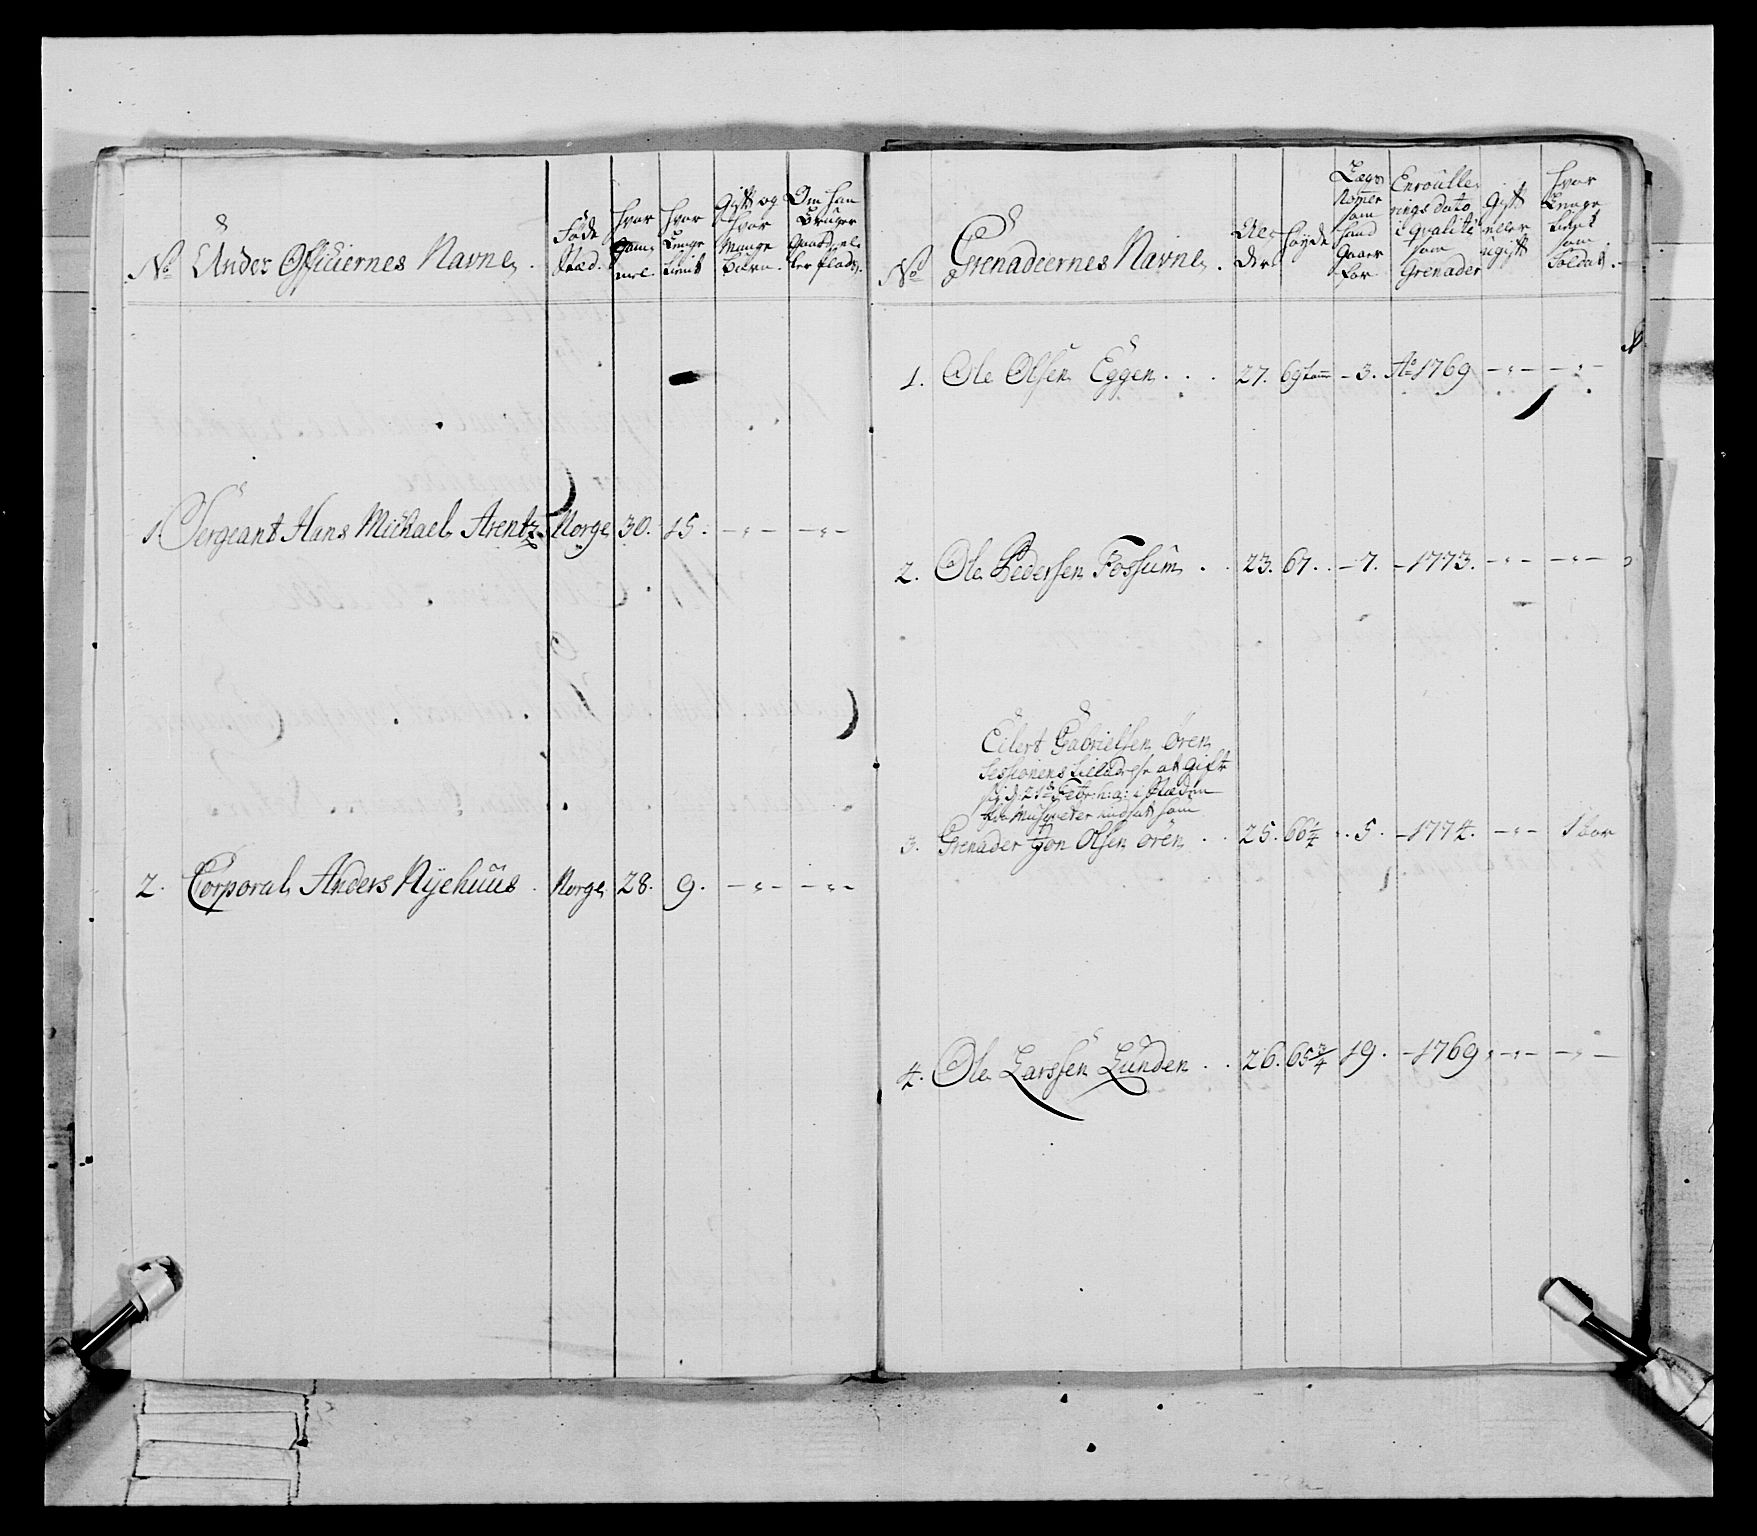 No
Under Officiernes Navne.
Føde
Stæd.
hvor
Gam-
mel
hvor
Lenge
tient
Gift og
hvor
Mange
Børn.
Om han
Bruger
Gaard, el-
ler Plads.
1. Sergeant Hans Michael Arentz. Norge 30. 15. - " - - " -
2. Corporal Anders Nyehuus. Norge 28. 9. - " - - " -
No
Grenadeernes Navne.
Al-
der
Høyde
Lægs
Nomer
som
hand
Gaaer
for
Enroulle-
rings dato
i qvalité
som
Grenader
Gift
eller
ugift
hvor
Lenge
tient
som
Soldat.
1. Ole Olsen Eggen. . . 27. 69 tom - 3. Ao 1769 - " - - " -
2. Ole Pedersen Fossum. . 23. 67. - 7. - 1773. - " - - " -
Eilert Gabrielsen Ören
Sessionens at Gift
21de Febr: h: a: i Stæden
Musqueter indsat som
3. Grenader Jon Olsen Ören. . 25. 66 1/4 . 5. - 1774. - " - 1 aar
4. Ole Larssen Lunden. . 26. 65 3/4 19. - 1769. - " - - " -